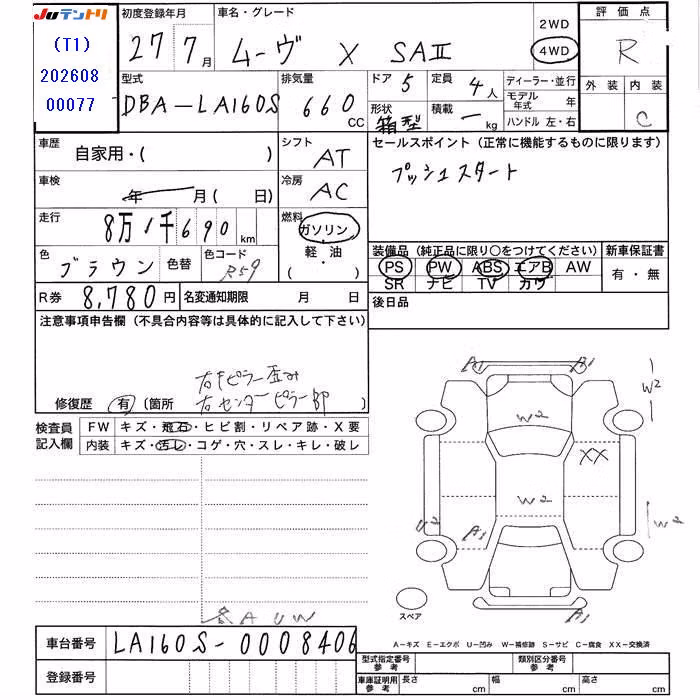 Juテントリ
(T1)
202608
00077
初度登録年月
27 7月
車名・グレード
ムーヴ X SAⅡ
2WD
4WD
評価点
R
外装 内装
C
型式
DBA-LA160S
排気量
660 CC
ドア 5
定員 4人
形状 箱型
積載 ー kg
ディーラー・並行
モデル年式 年
ハンドル 左・右
車歴
自家用・( )
シフト
AT
セールスポイント (正常に機能するものに限ります)
プッシュスタート
車検
年 月( 日)
冷房
AC
走行
8万1千690km
燃料
ガソリン
・軽油・
( )
色
ブラウン
色替
色コード
R59
装備品 (純正品に限り○をつけてください)
新車保証書
PS PW ABS エアB AW
SR ナビ TV カワ
有・無
R券 8,780円
名変通知期限 月 日
後日品
注意事項申告欄 (不具合内容等は具体的に記入して下さい)
右Fピラー歪み
修復歴 有 (箇所 右センターピラー部 )
検査員
記入欄
FW キズ・飛石・ヒビ割・リペア跡・X要
内装 キズ・汚レ・コゲ・穴・スレ・キレ・破レ
A1 A1
W2
W2
XX
W2
U2
A1
W2
スペア
A1
各AUW
車台番号 LA160S-0008406
登録番号
A-キズ E-エクボ U-凹み W-補修跡 S-サビ C-腐食 XX-交換済
型式指定番号 参考
類別区分番号 参考
車庫証明用 参考
長さ cm 幅 cm 高さ cm